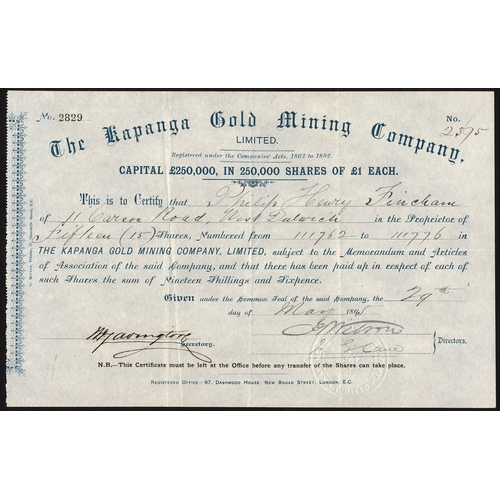 No. 2829
No.
2595
The Kapanga Gold Mining Company,
LIMITED.
Registered under the Companies' Acts, 1862 to 1892.
CAPITAL £250,000, IN 250,000 SHARES OF £1 EACH.
This is to Certify that Philip Henry Fincham
of 11 Carson Road, West Dulwich is the Proprietor of
Fifteen (15) Shares, Numbered from 111762 to 111776 in
THE KAPANGA GOLD MINING COMPANY, LIMITED, subject to the Memorandum and Articles
of Association of the said Company, and that there has been paid up in respect of each of
such Shares the sum of Nineteen Shillings and Sixpence.
Given under the Common Seal of the said Company, the 29th
day of May 1895
Secretary.
Directors.
N.B.—This Certificate must be left at the Office before any transfer of the Shares can take place.
REGISTERED OFFICE:—97, DASHWOOD HOUSE, NEW BROAD STREET, LONDON, E.C.